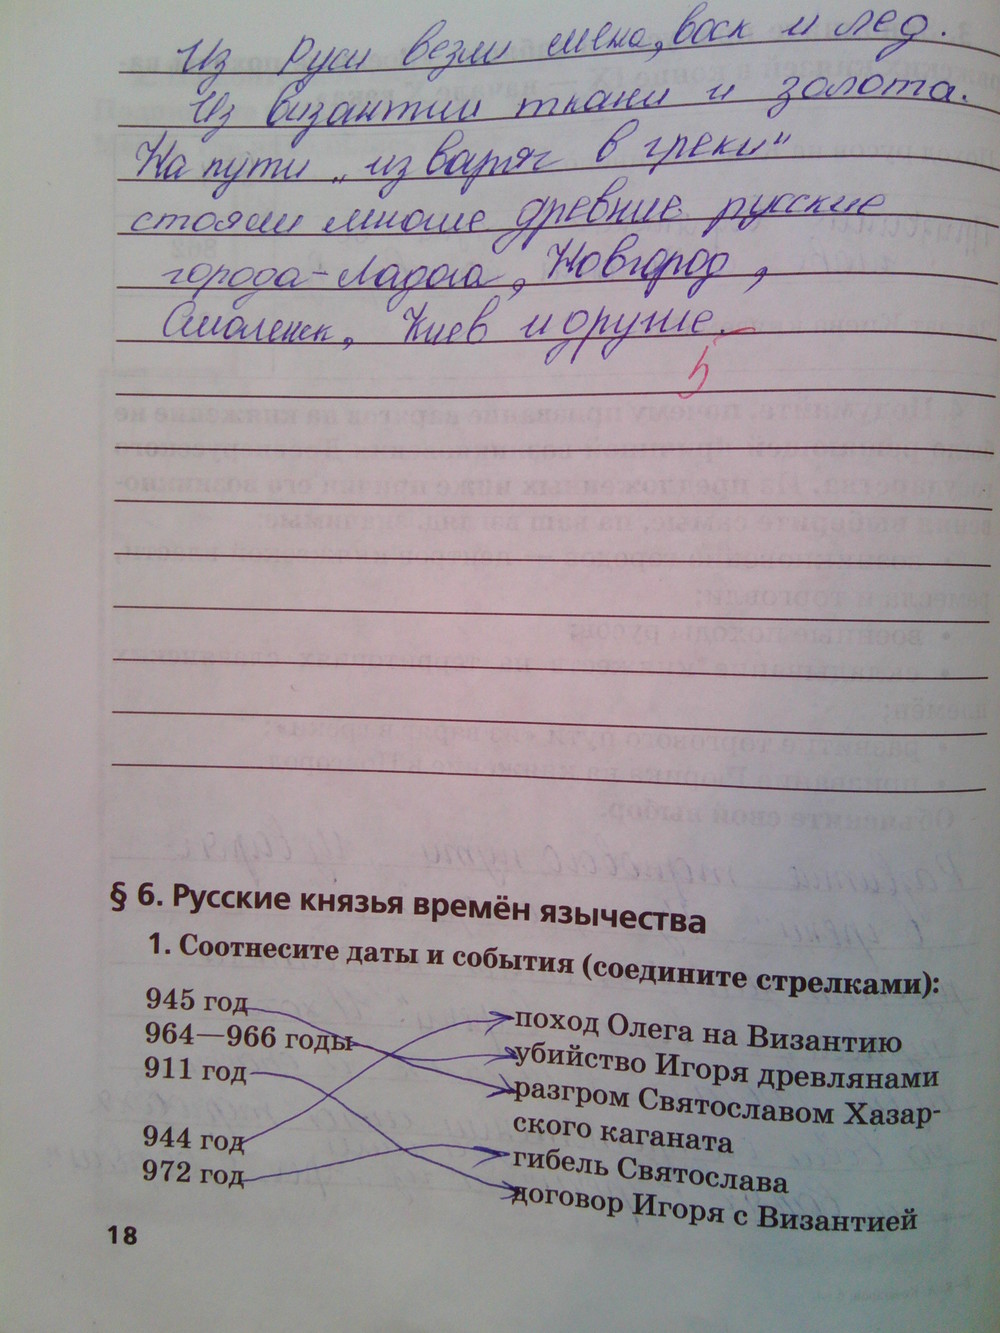 Из Руси везли мена, воск и лед.
Из византии ткани и золота.
На пути „из варяг в греки"
стояли многие древние русские
города - Ладога, Новгород,
Смоленск, Киев и другие.
5
§ 6. Русские князья времён язычества
1. Соотнесите даты и события (соедините стрелками):
945 год
964—966 годы
911 год
944 год
972 год
поход Олега на Византию
убийство Игоря древлянами
разгром Святославом Хазар-
ского каганата
гибель Святослава
договор Игоря с Византией
18